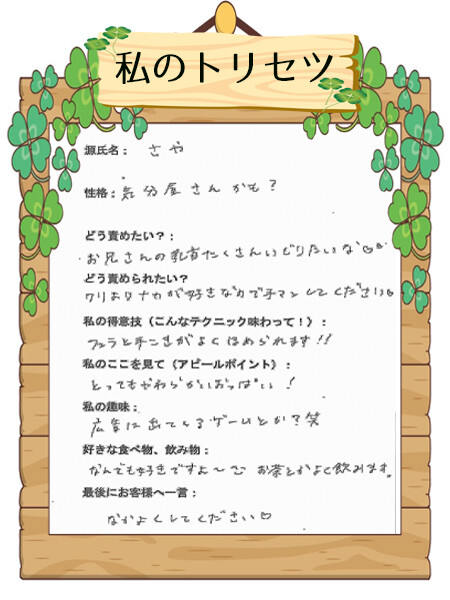 私のトリセツ
源氏名： さや
性格： 気分屋さんかも？
どう責めたい？：
お兄さんの乳首たくさんいじりたいな♡♡
どう責められたい？
クリよりナカが好きなので手マンしてください♡
私の得意技（こんなテクニック味わって！）：
フェラと手コキがよくほめられます!!
私のここを見て（アピールポイント）：
とってもやわらかいおっぱい！
私の趣味：
広告に出てくるゲームとか？笑
好きな食べ物、飲み物：
なんでも好きですよ〜 お茶とかよく飲みます
最後にお客様へ一言：
なかよくしてください♡